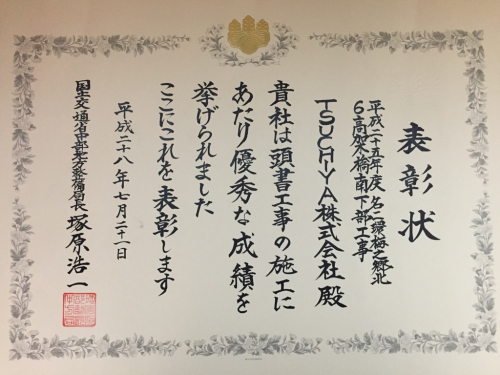 表彰状
平成二十五年度 名二環梅之郷北
6高架橋南下部工事
TSUCHIYA株式会社 殿
貴社は頭書工事の施工に
あたり優秀な成績を
挙げられました
ここにこれを表彰します
平成二十八年七月二十一日
国土交通省中部地方整備局長 塚原浩一